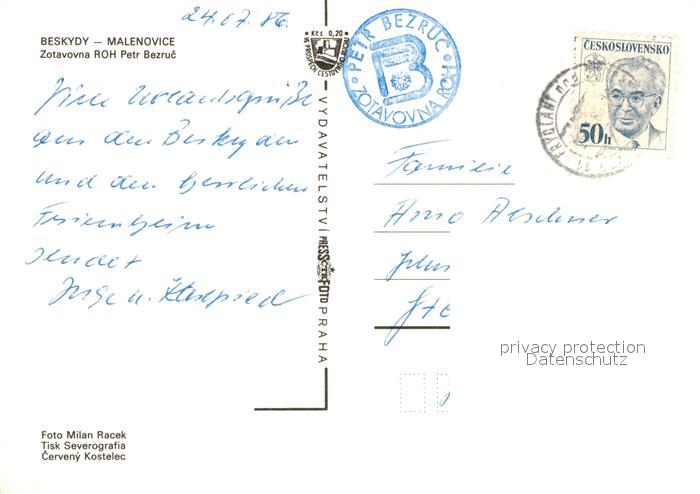 24.07.86
BESKYDY — MALENOVICE
Zotavovna ROH Petr Bezruč
Kčs 0,20
VE PROSPĚCH CESTOVNÍHO RUCHU
• PETR BEZRUČ •
B
ZOTAVOVNA ROH
ČESKOSLOVENSKO
50h
FRÝDLANT
Viele Urlaubsgrüße
aus den Beskyden
und den herrlichen
Ferienheim
sendet
Inge u.
Familie
Arno
VYDAVATELSTVÍ PRESSFOTO PRAHA
ČTK
privacy protection
Datenschutz
Foto Milan Racek
Tisk Severografia
Červený Kostelec